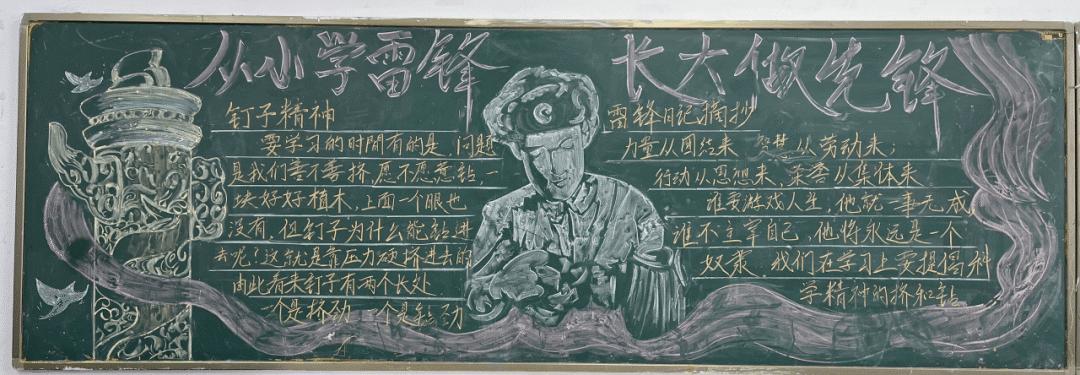 从小学雷锋
长大做先锋
钉子精神
要学习的时间有的是 问题
是我们善不善挤,愿不愿意钻,一
块好好植木,上面一个眼也
没有,但钉子为什么能钻进
去呢!这就是靠压力硬挤进去的
由此看来钉子有两个长处
一个是挤劲,一个是钻劲
雷锋日记摘抄
力量从团结来 智慧从劳动来;
行动从思想来,荣誉从集体来
谁要游戏人生,他就一事无成,
谁不主宰自己,他将永远是一个
奴隶,我们在学习上要提倡科
学精神的挤和钻